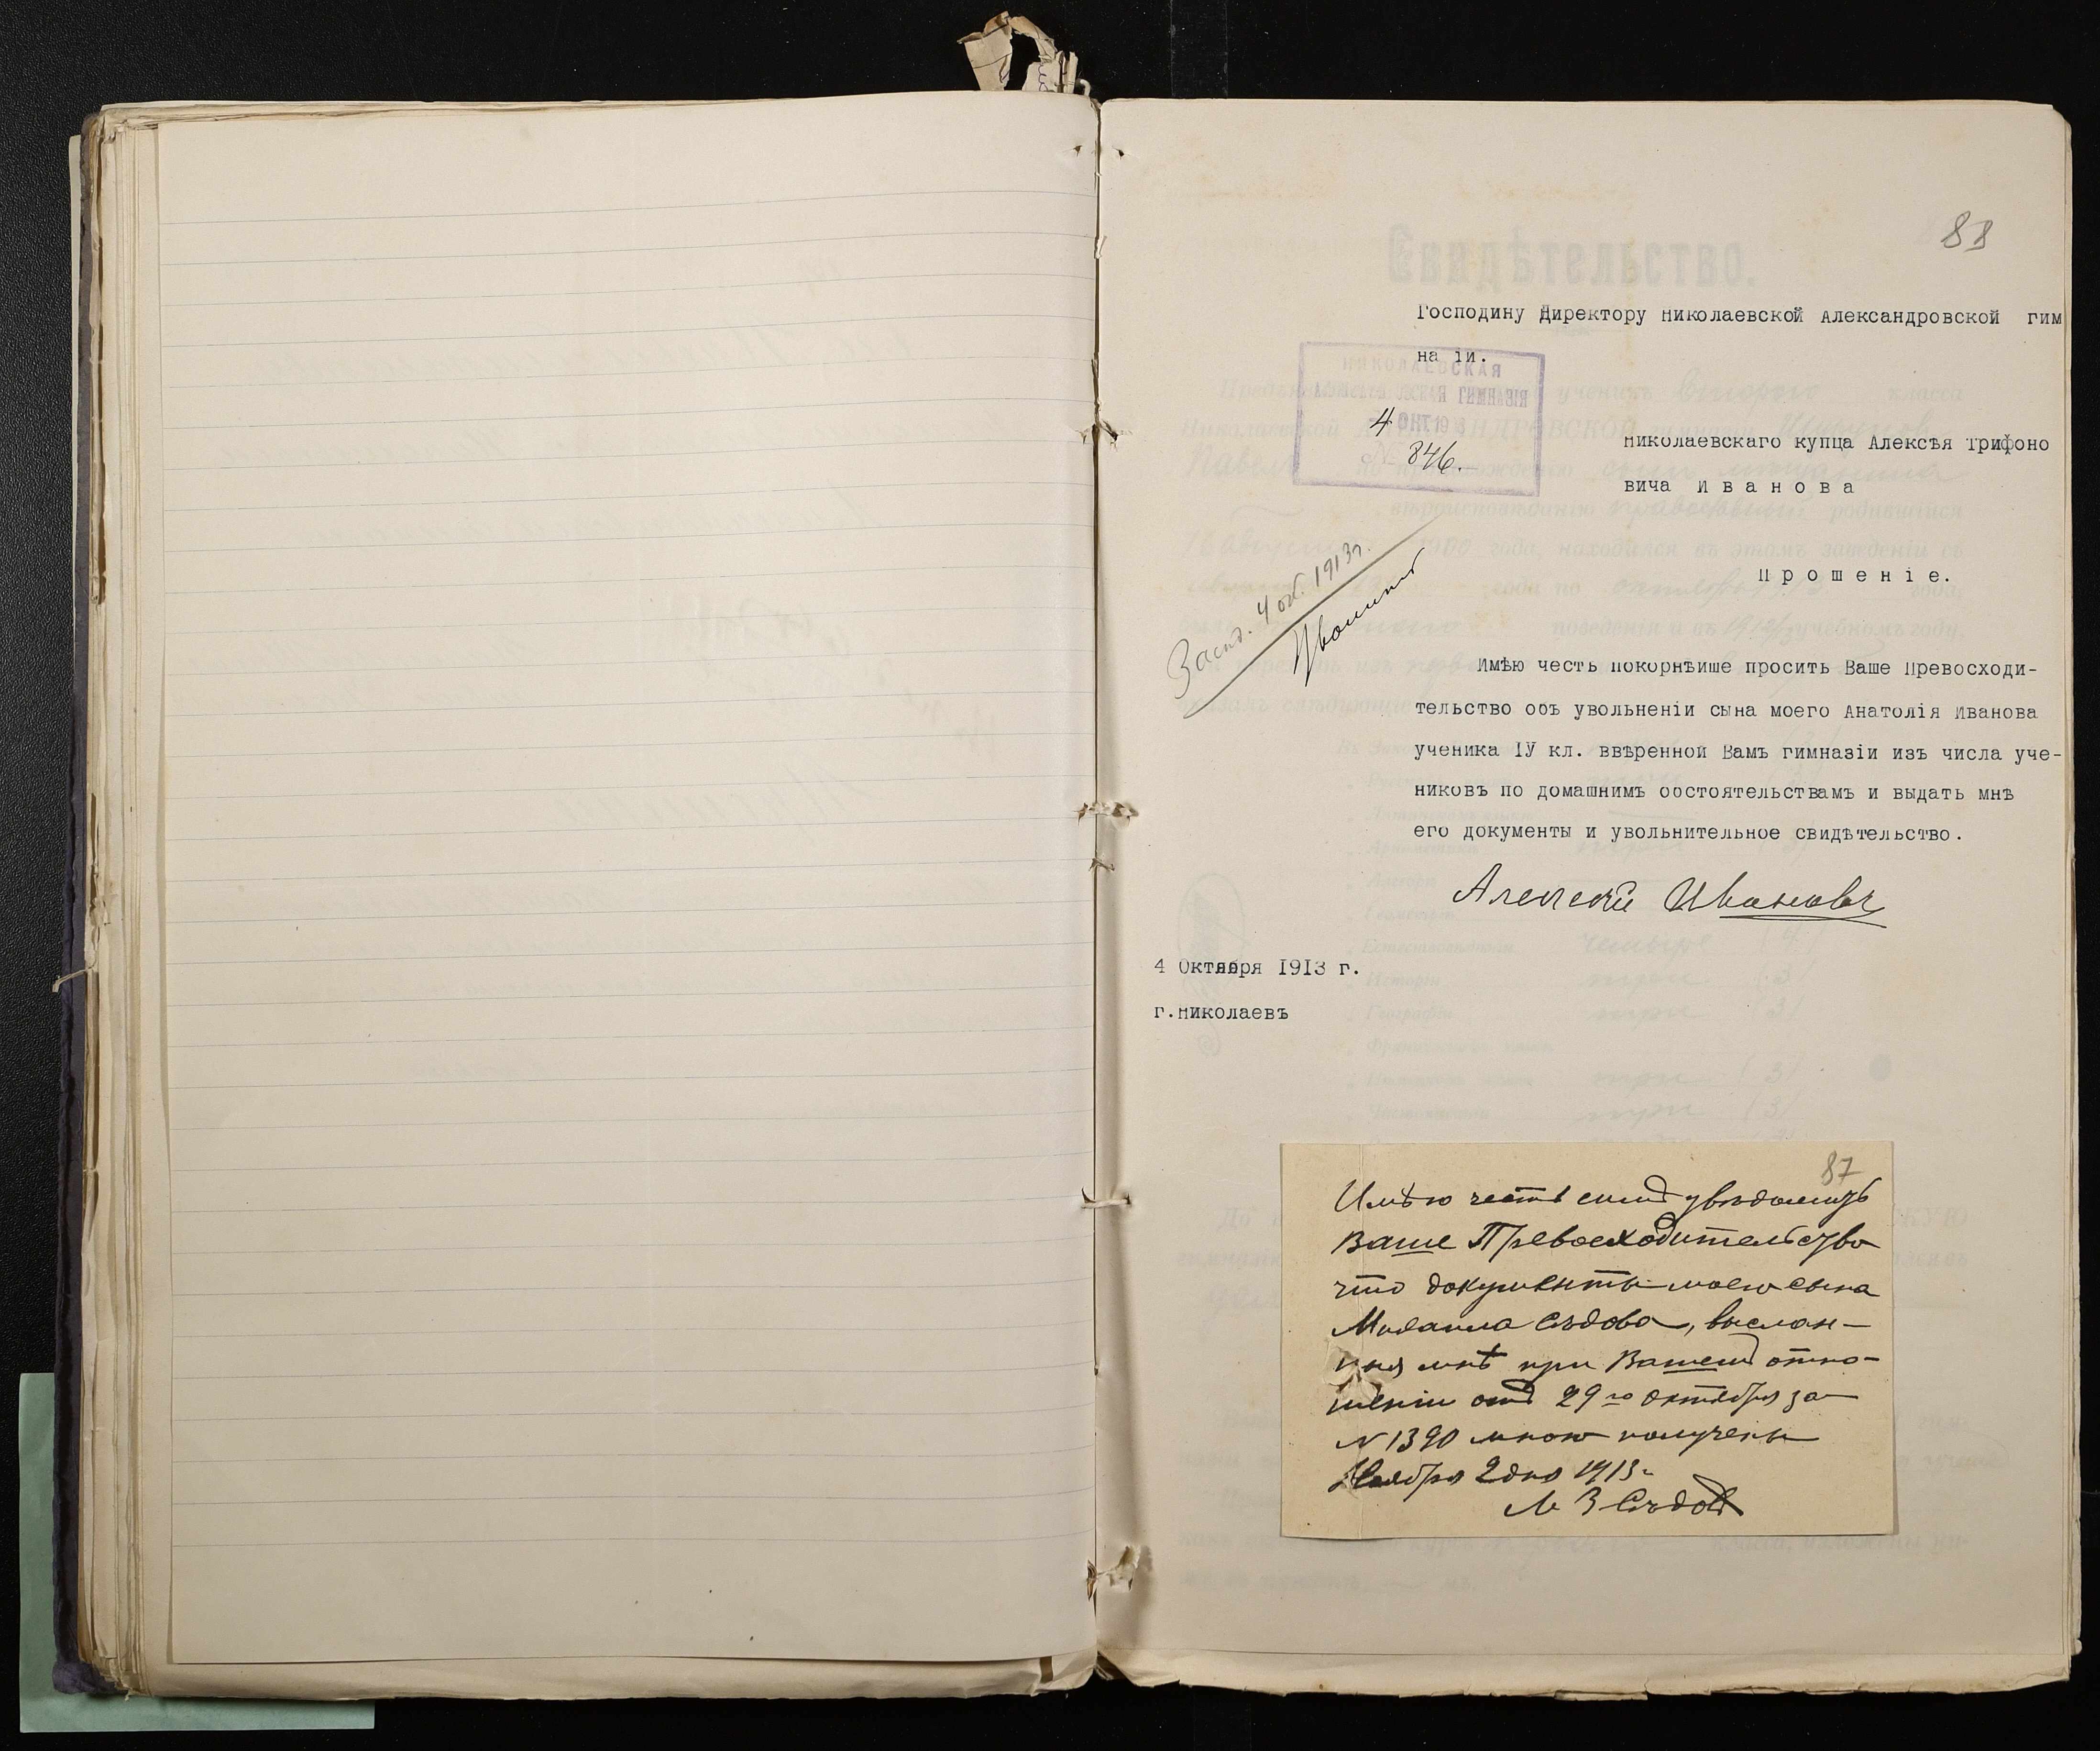 88
Господину Директору Николаевской Александровской гим
на іи.
НИКОЛАЕВСКАЯ
АЛЕКСАНДРОВСКАЯ ГИМНАЗІЯ
4 ОКТ. 1913
№ 846.
Николаевскаго купца Алексѣя Трифоно
вича Иванова
Прошеніе.
4 окт. 1913 г.
Имѣю честь покорнѣише просить Ваше Превосходи-
тельство объ увольненіи сына моего Анатолія Иванова
ученика IУ кл. ввѣренной Вамъ гимназіи изъ числа уче-
никовъ по домашнимъ обстоятельствамъ и выдать мнѣ
его документы и увольнительное свидѣтельство.
Алексѣй Ивановъ
4 Октября 1913 г.
г.Николаевъ
87
Имѣю честь симъ увѣдомить
Ваше Превосходительство
что документы моего сына
Михаила Сѣдова, выслан-
ныя мнѣ при Вашемъ отно-
шеніи отъ 29го октября за
N 1390 мною получены
Ноября 2 дня 1913 г.
М З Сѣдовъ